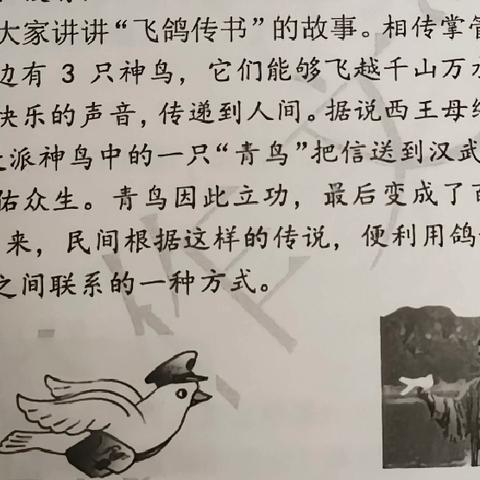 大家讲讲“飞鸽传书”的故事。相传掌管
边有 3 只神鸟，它们能够飞越千山万水
快乐的声音，传递到人间。据说西王母给
派神鸟中的一只“青鸟”把信送到汉武
佑众生。青鸟因此立功，最后变成了百
来，民间根据这样的传说，便利用鸽
之间联系的一种方式。